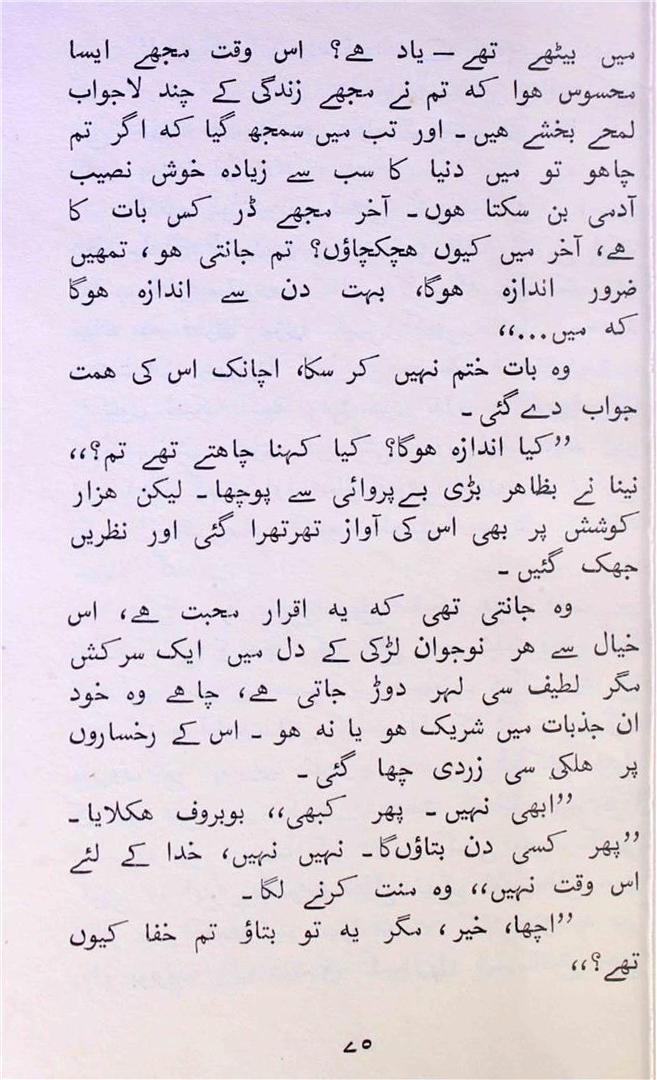 میں بیٹھے تھے — یاد ہے؟ اس وقت مجھے ایسا
محسوس ہوا کہ تم نے مجھے زندگی کے چند لاجواب
لمحے بخشے ہیں۔ اور تب میں سمجھ گیا کہ اگر تم
چاہو تو میں دنیا کا سب سے زیادہ خوش نصیب
آدمی بن سکتا ہوں۔ آخر مجھے ڈر کس بات کا
ہے، آخر میں کیوں ہچکچاؤں؟ تم جانتی ہو، تمھیں
ضرور اندازہ ہوگا، بہت دن سے اندازہ ہوگا
کہ میں...،،
وہ بات ختم نہیں کر سکا، اچانک اس کی ہمت
جواب دے گئی۔
”کیا اندازہ ہوگا؟ کیا کہنا چاہتے تھے تم؟،،
نینا نے بظاہر بڑی بےپروائی سے پوچھا۔ لیکن ہزار
کوشش پر بھی اس کی آواز تھرتھرا گئی اور نظریں
جھک گئیں۔
وہ جانتی تھی کہ یہ اقرار محبت ہے، اس
خیال سے ہر نوجوان لڑکی کے دل میں ایک سرکش
مگر لطیف سی لہر دوڑ جاتی ہے، چاہے وہ خود
ان جذبات میں شریک ہو یا نہ ہو۔ اس کے رخساروں
پر ہلکی سی زردی چھا گئی۔
”ابھی نہیں۔ پھر کبھی،، بوبروف ہکلایا۔
”پھر کسی دن بتاؤں گا۔ نہیں نہیں، خدا کے لئے
اس وقت نہیں،، وہ منت کرنے لگا۔
”اچھا، خیر، مگر یہ تو بتاؤ تم خفا کیوں
تھے؟،،
۷۵